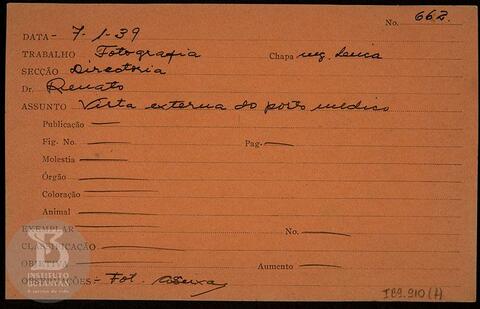 No. 662.
DATA - 7-1-39
TRABALHO Fotografia Chapa neg. Leica
SECÇÃO Directoria
Dr. Renato
ASSUNTO Vista externa do posto medico
Publicação —
Fig. No. — Pag. —
Molestia —
Órgão —
Coloração —
Animal —
EXEMPLAR — No. —
CLASSIFICAÇÃO —
OBJETIVA — Aumento —
OBSERVAÇÕES - Fot.
INSTITUTO BUTANTAN
A serviço da vida